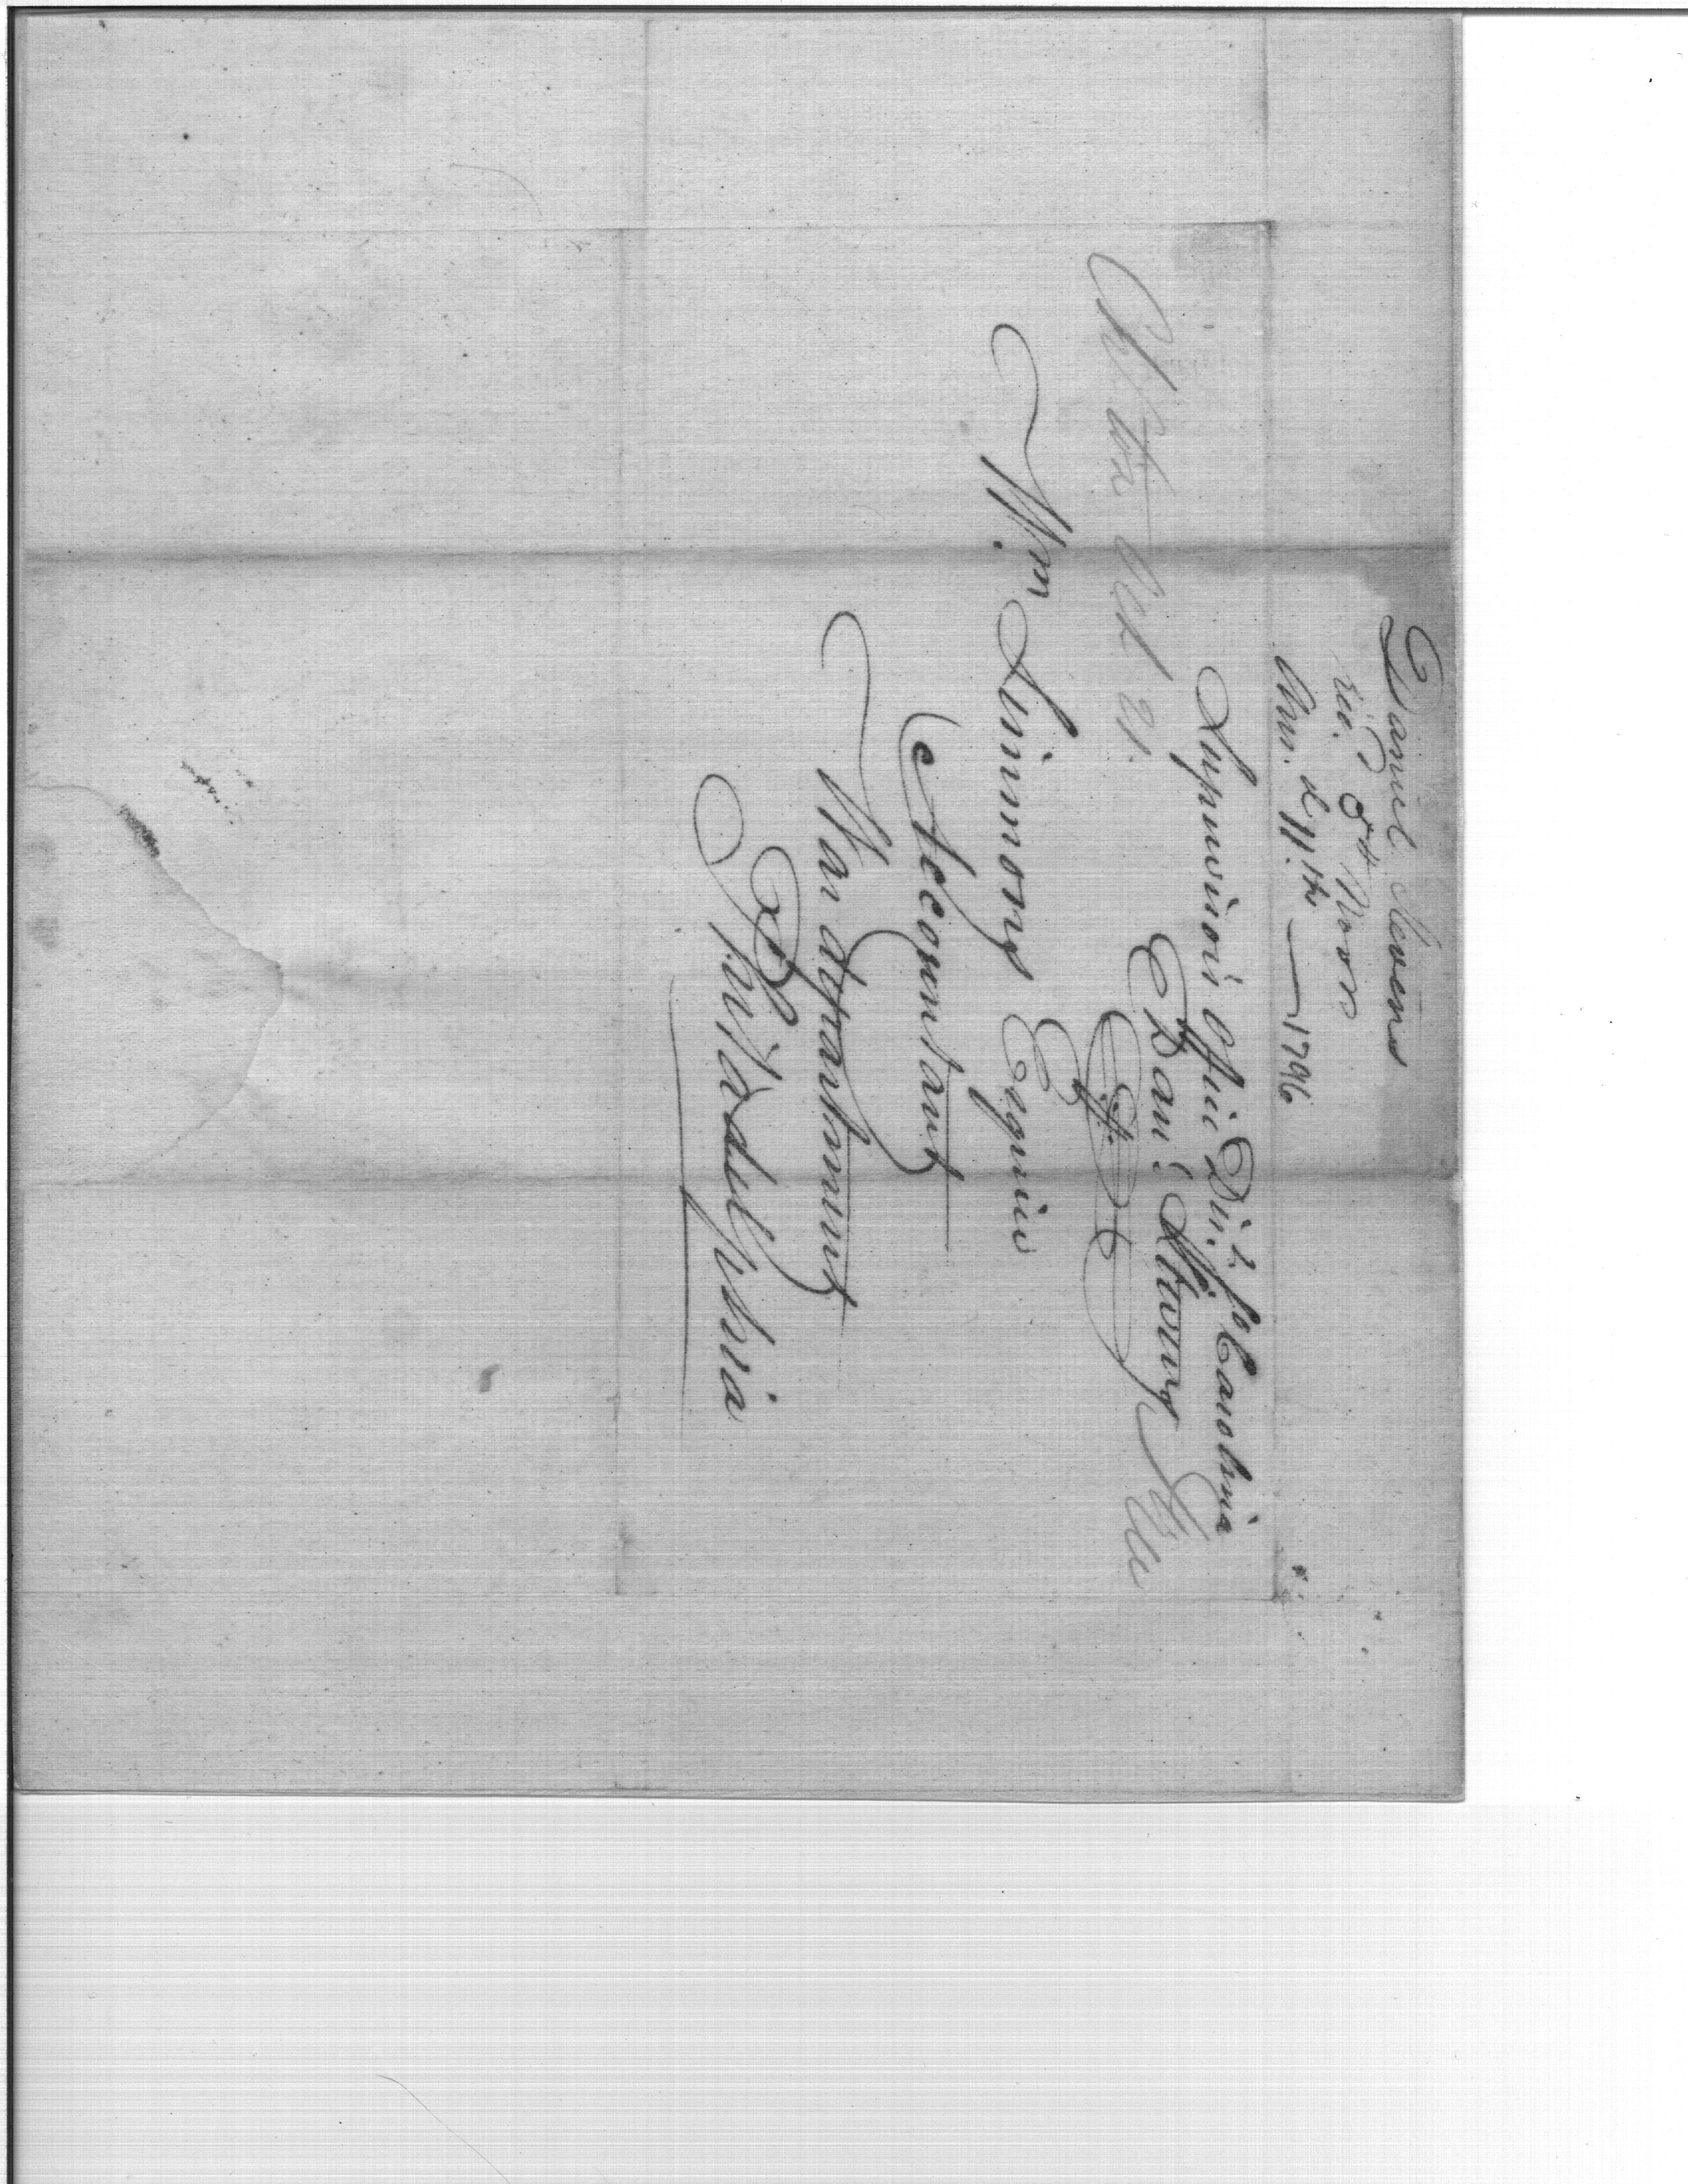 Daniel Stevens
rec.d 5th Novr
Ans. d 11th — 1796
Supervisors Office Dist. So Carolina
Dan.l Stevens
Ch.ton Oct 21.
Free
Wm. Simmons Esquire
Accountant
War department
Philadelphia